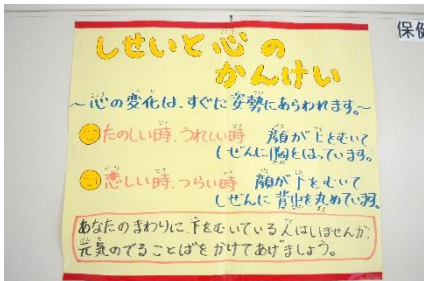 しせいと心の
かんけい
～心の変化は、すぐに姿勢にあらわれます。～
たのしい時、うれしい時 顔が上をむいて
しぜんに胸をはっています。
悲しい時、つらい時 顔が下をむいて
しぜんに背中を丸めています。
あなたのまわりに、下をむいている人はいませんか。
元気のでることばをかけてあげましょう。
保健